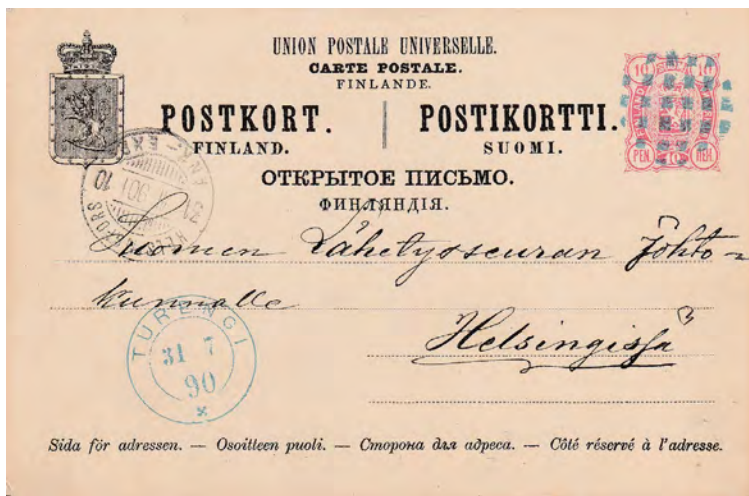 UNION POSTALE UNIVERSELLE.
CARTE POSTALE.
FINLANDE.
POSTKORT. POSTIKORTTI.
FINLAND. SUOMI.
ОТКРЫТОЕ ПИСЬМО.
ФИНЛЯНДІЯ.
10 10
FINLAND
PEN. 10 ПЕН.
Suomen Lähetysseuran Johto-
kunnalle
Helsingissä
TURENGI
31 7
90
Sida för adressen. — Osoitteen puoli. — Сторона для адреса. — Côté réservé à l'adresse.